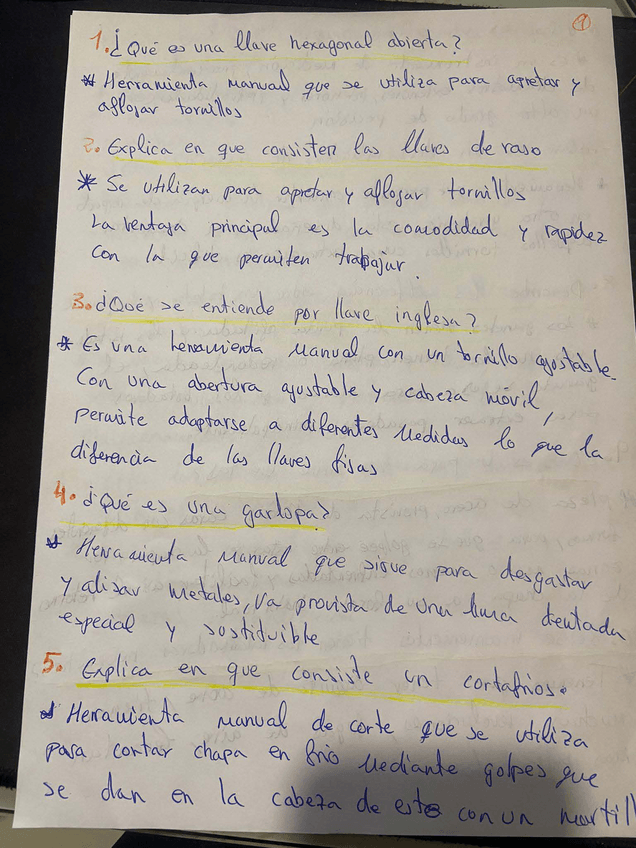 1
1. ¿Qué es una llave hexagonal abierta?
* Herramienta manual que se utiliza para apretar y
aflojar tornillos
2. Explica en que consisten las llaves de vaso
* Se utilizan para apretar y aflojar tornillos
La ventaja principal es la comodidad y rapidez
con la que permiten trabajar.
3. ¿Qué se entiende por llave inglesa?
* Es una herramienta manual con un tornillo ajustable.
Con una abertura ajustable y cabeza móvil,
permite adaptarse a diferentes medidas lo que la
diferencia de las llaves fijas
4. ¿Qué es una garlopa?
* Herramienta manual que sirve para desgastar
y alisar metales, va provista de una lima dentada
especial y sustituible
5. Explica en que consiste un cortafrios.
* Herramienta manual de corte que se utiliza
para cortar chapa en frio mediante golpes que
se dan en la cabeza de este con un martill